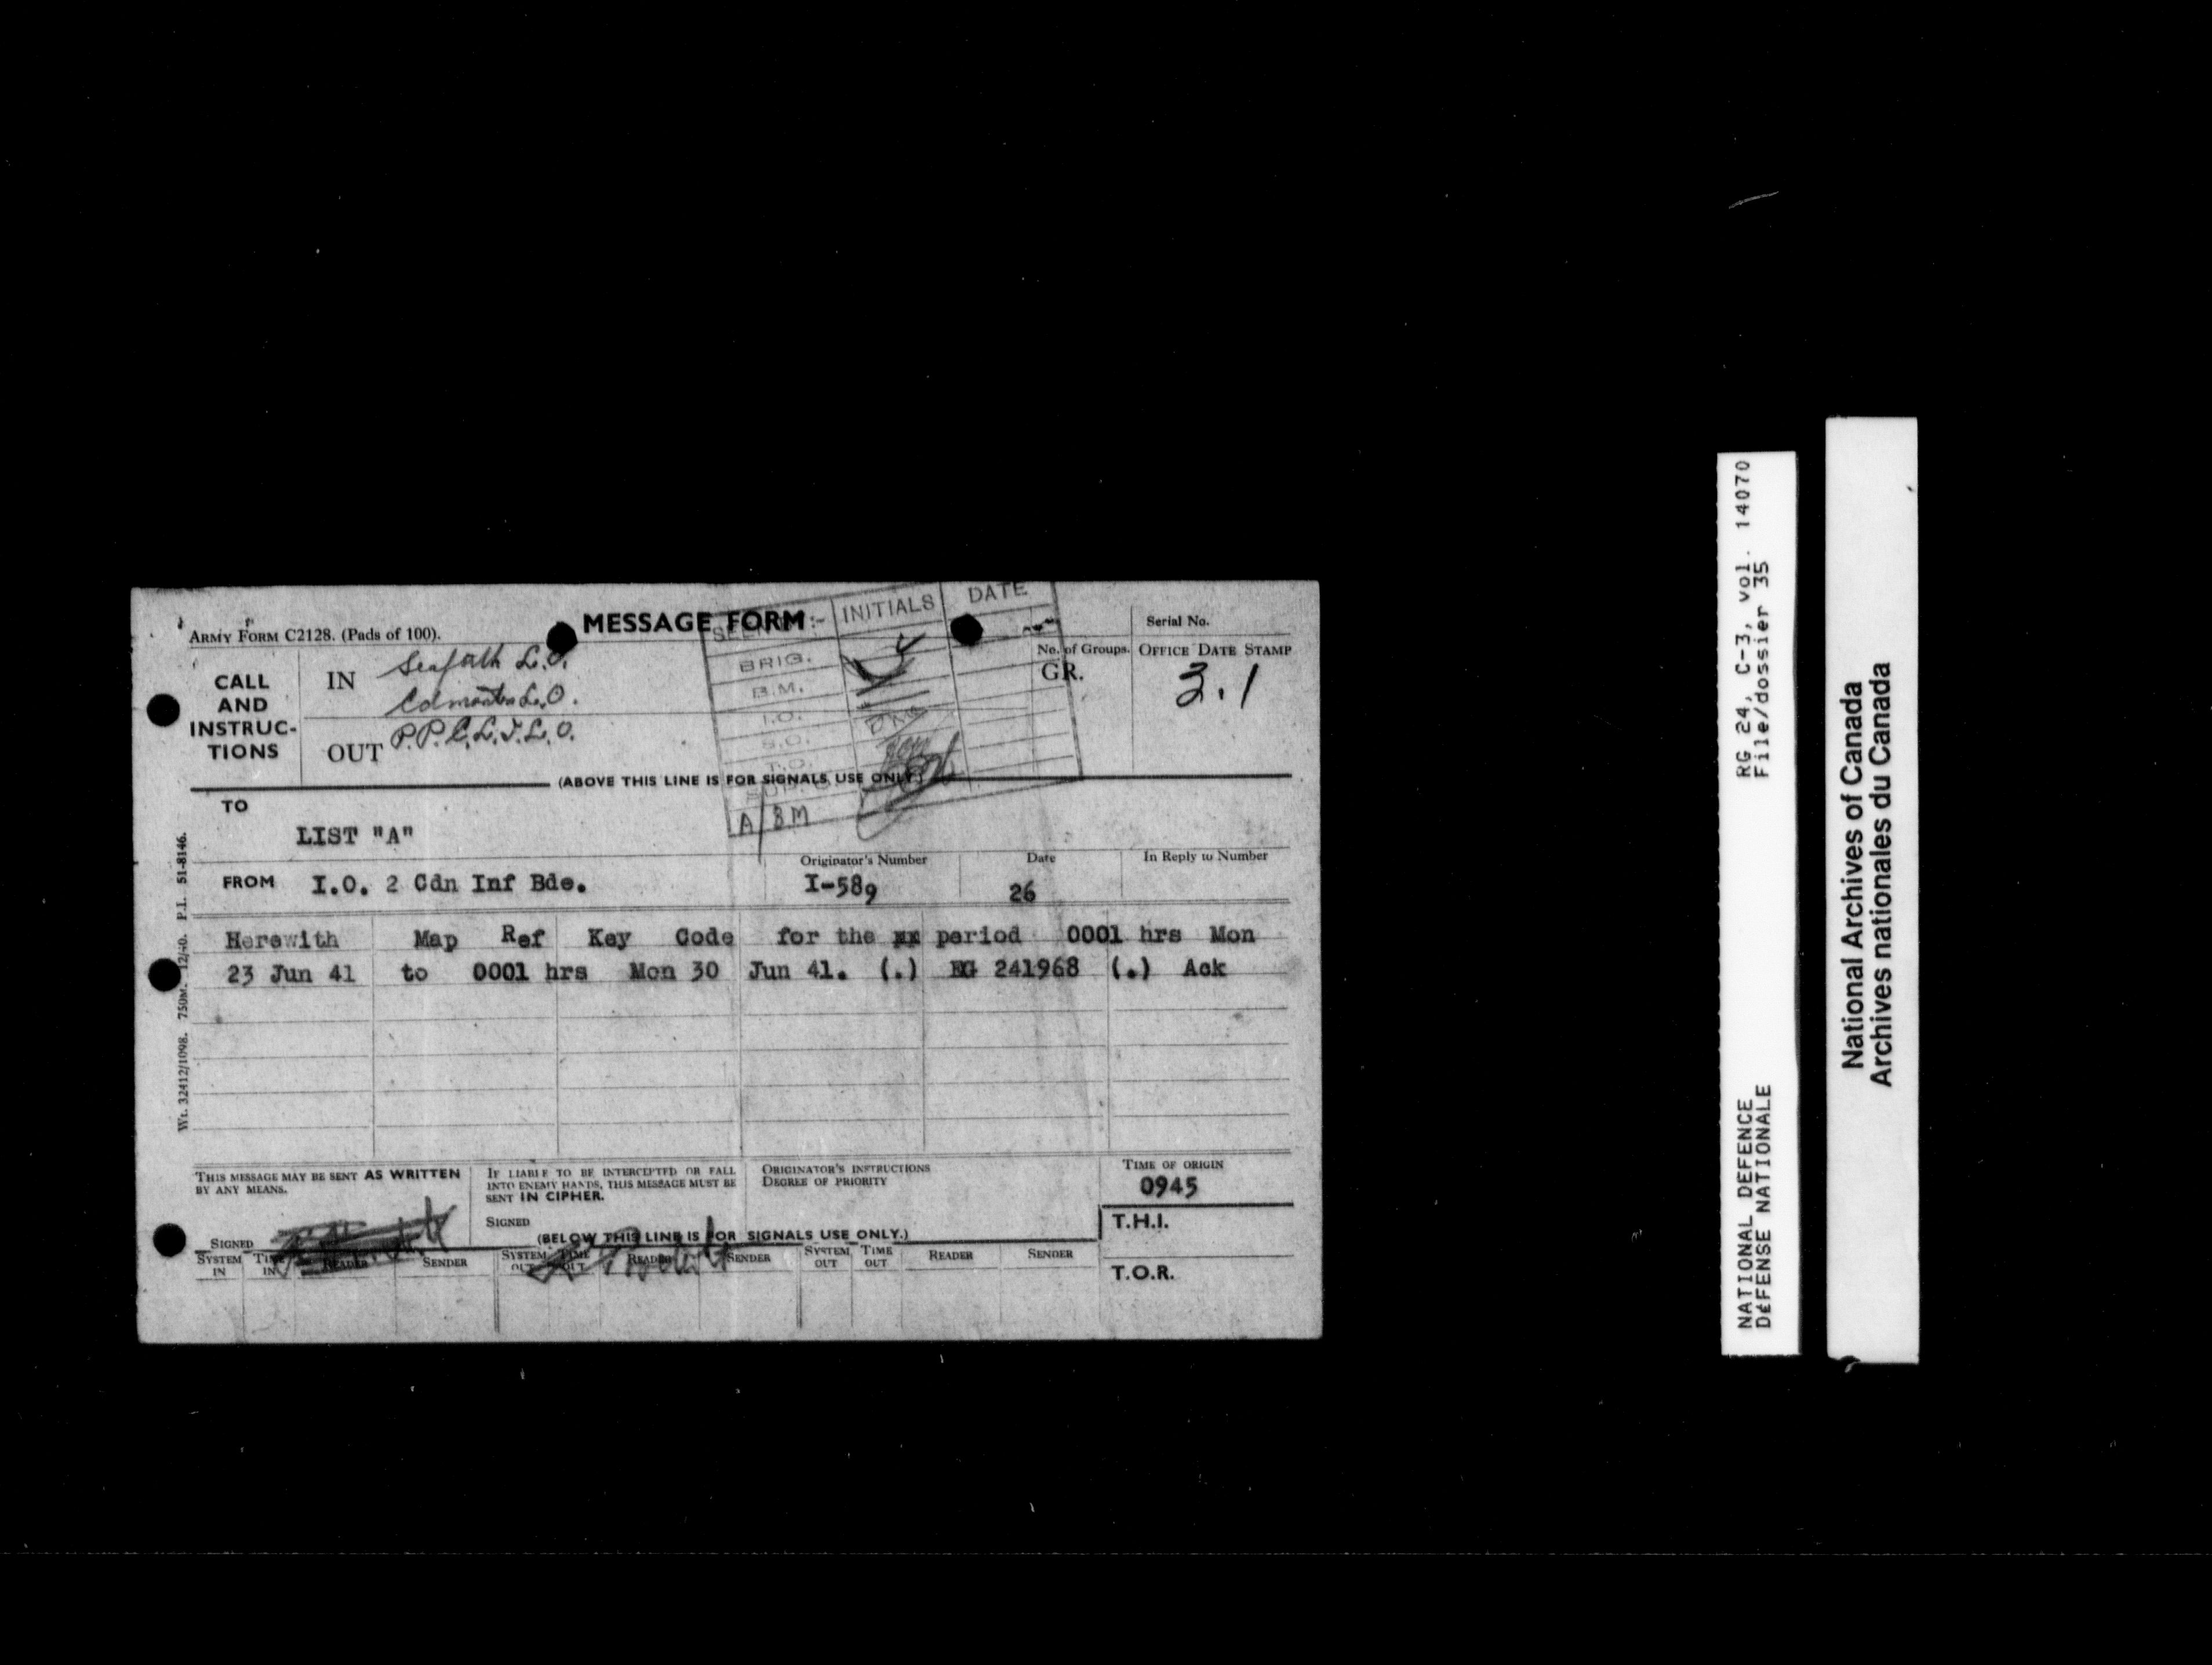 ARMY FORM C2128. (Pads of 100).
MESSAGE FORM
SEEN :- INITIALS DATE
BRIG.
B.M.
I.O.
S.O.
T.O.
A/BM
Serial No.
No. of Groups.
GR.
OFFICE DATE STAMP
3.1
CALL AND INSTRUC-TIONS
IN
Seaforth L.O.
Edmonton L.O.
OUT
P.P.C.L.I. L.O.
(ABOVE THIS LINE IS FOR SIGNALS USE ONLY.)
TO
LIST "A"
FROM I.O. 2 Cdn Inf Bde.
Originator's Number
I-589
Date
26
In Reply to Number
Herewith Map Ref Key Code for the xx period 0001 hrs Mon
23 Jun 41 to 0001 hrs Mon 30 Jun 41. (.) 241968 (.) Ack
Wt. 32412/1098. 750M. 12/40. P.I. 51-8146.
THIS MESSAGE MAY BE SENT AS WRITTEN
BY ANY MEANS.
SIGNED
IF LIABLE TO BE INTERCEPTED OR FALL
INTO ENEMY HANDS, THIS MESSAGE MUST BE
SENT IN CIPHER.
SIGNED
ORIGINATOR'S INSTRUCTIONS
DEGREE OF PRIORITY
TIME OF ORIGIN
0945
T.H.I.
T.O.R.
(BELOW THIS LINE IS FOR SIGNALS USE ONLY.)
SYSTEM IN TIME IN READER SENDER SYSTEM OUT TIME OUT READER SENDER SYSTEM OUT TIME OUT READER SENDER
NATIONAL DEFENCE RG 24, C-3, vol. 14070
DéFENSE NATIONALE File/dossier 35
National Archives of Canada
Archives nationales du Canada